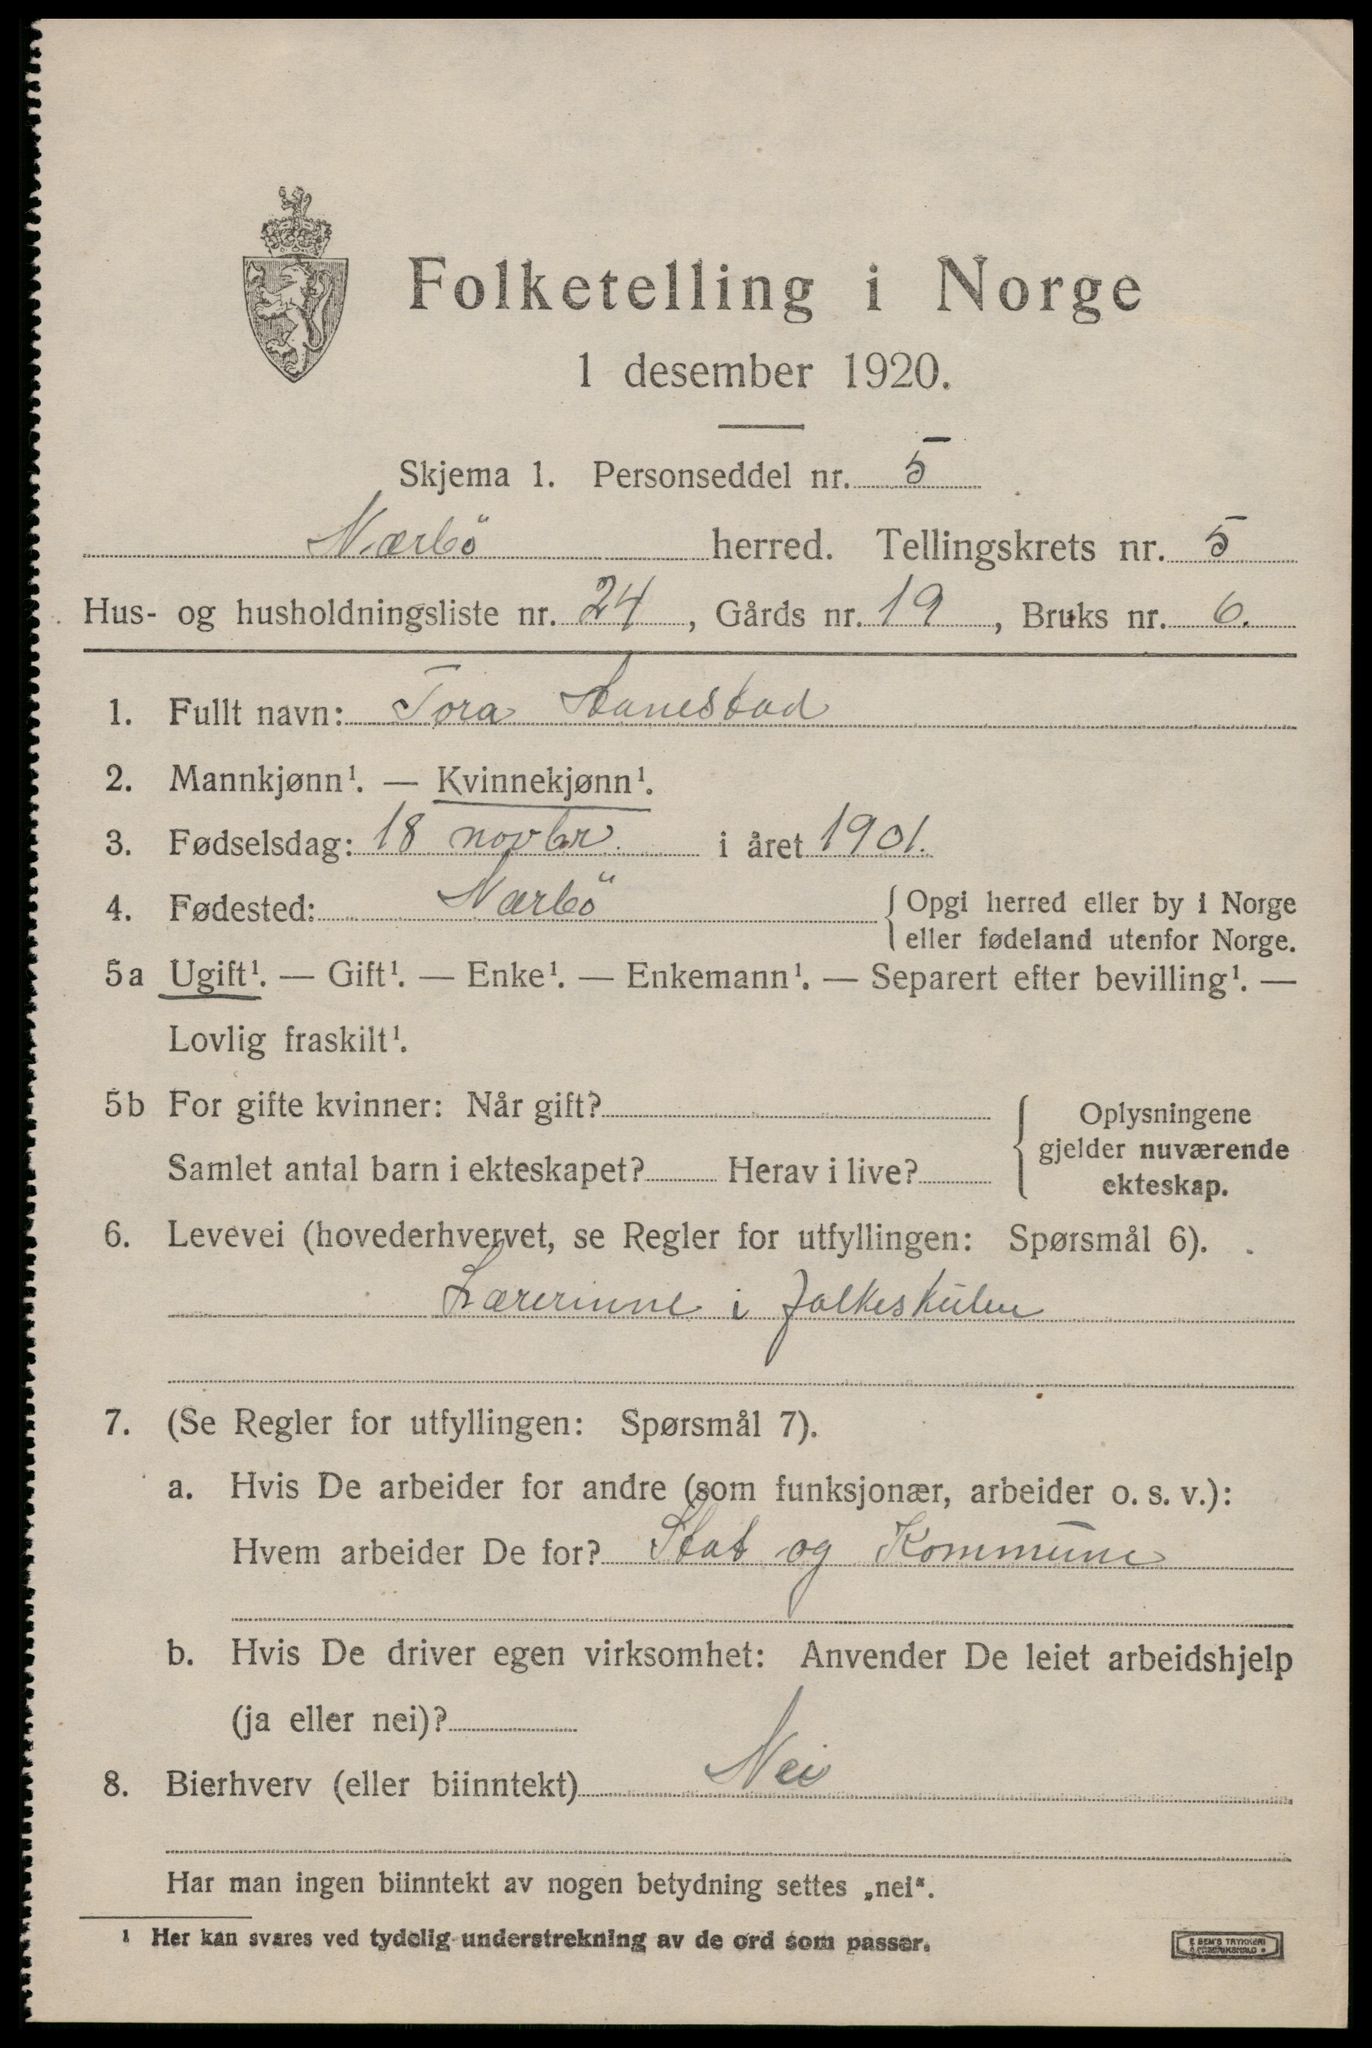 Folketelling i Norge
1 desember 1920.
Skjema 1. Personseddel nr. 5
Nærbö herred. Tellingskrets nr. 5
Hus- og husholdningsliste nr. 24, Gårds nr. 19, Bruks nr. 6.
1. Fullt navn: Tora
2. Mannkjønn¹. — Kvinnekjønn¹.
3. Fødselsdag: 18 novbr. i året 1901.
4. Fødested: Nærbö { Opgi herred eller by i Norge
eller fødeland utenfor Norge.
5a Ugift¹. — Gift¹. — Enke¹. — Enkemann¹. — Separert efter bevilling¹. —
Lovlig fraskilt¹.
5b For gifte kvinner: Når gift?
Samlet antal barn i ekteskapet? Herav i live?
{ Oplysningene
gjelder nuværende
ekteskap.
6. Levevei (hovederhvervet, se Regler for utfyllingen: Spørsmål 6).
Lærerinne i folkeskulen
7. (Se Regler for utfyllingen: Spørsmål 7).
a. Hvis De arbeider for andre (som funksjonær, arbeider o. s. v.):
Hvem arbeider De for? Stat og Kommune
b. Hvis De driver egen virksomhet: Anvender De leiet arbeidshjelp
(ja eller nei)?
8. Bierhverv (eller biinntekt) Nei
Har man ingen biinntekt av nogen betydning settes „nei“.
¹ Her kan svares ved tydelig understrekning av de ord som passer.